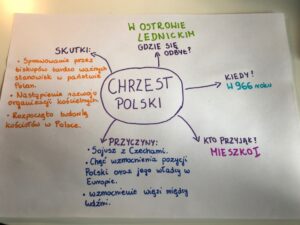 W OSTROWIE
LEDNICKIM
GDZIE SIĘ
ODBYŁ?
SKUTKI:
• Sprawowanie przez
biskupów bardzo ważnych
stanowisk w państwie
Polan.
• Nastąpienie rozwoju
organizacji kościelnych.
• Rozpoczęto budowlę
kościołów w Polsce.
CHRZEST
POLSKI
KIEDY?
W 966 roku
KTO PRZYJĄŁ?
MIESZKO I
PRZYCZYNY:
• Sojusz z Czechami.
• Chęć wzmocnienia pozycji
Polski oraz jego władzy w
Europie.
• wzmocnienie więzi między
ludźmi.